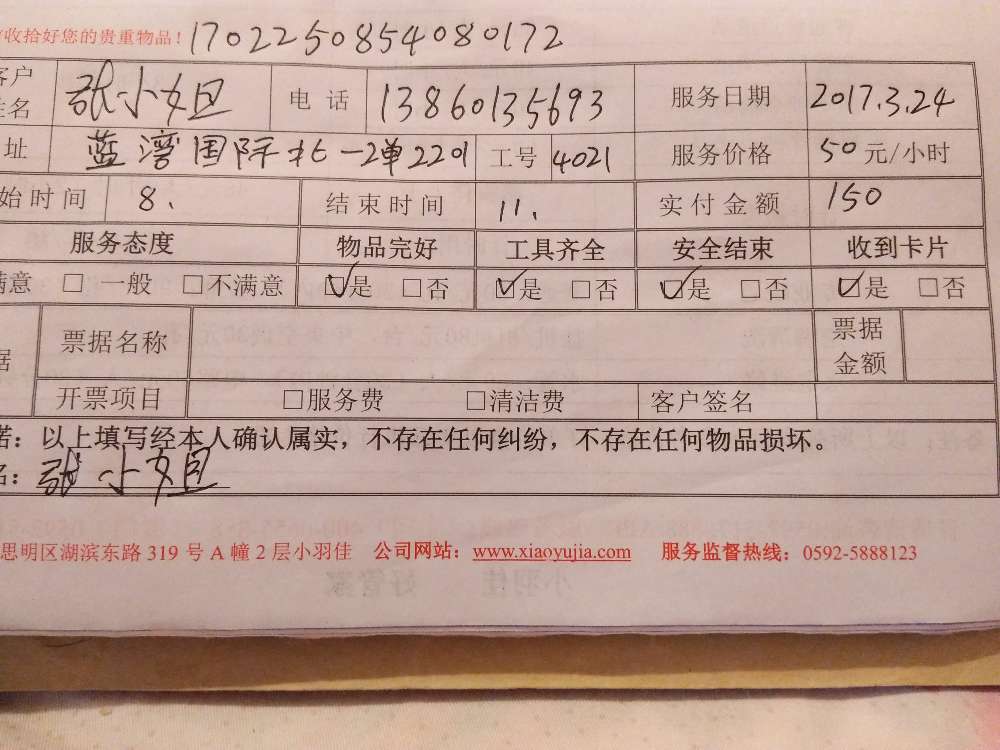 收拾好您的贵重物品！1702250854080172
客户姓名 张小姐 电话 13860135693 服务日期 2017.3.24
址 蓝湾国际北一2单2201 工号 4021 服务价格 50元/小时
始时间 8. 结束时间 11. 实付金额 150
服务态度 物品完好 工具齐全 安全结束 收到卡片
满意 □一般 □不满意 ☑是 □否 ☑是 □否 ☑是 □否 ☑是 □否
据 票据名称 票据金额
开票项目 □服务费 □清洁费 客户签名
诺：以上填写经本人确认属实，不存在任何纠纷，不存在任何物品损坏。
名：张小姐
思明区湖滨东路319号A幢2层小羽佳 公司网站：www.xiaoyujia.com 服务监督热线：0592-5888123